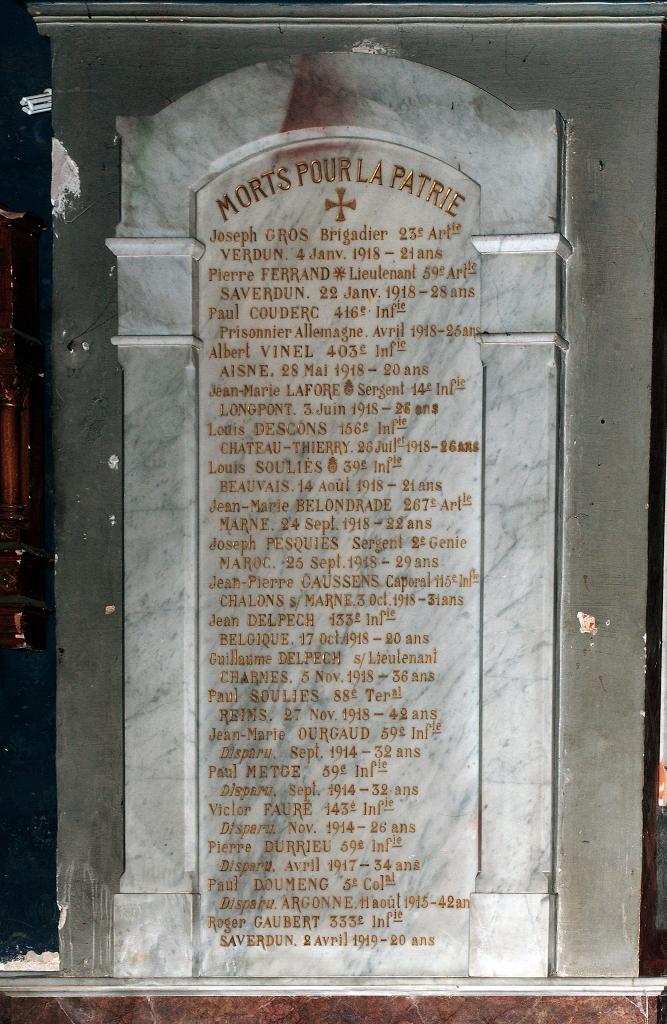 MORTS POUR LA PATRIE
Joseph GROS Brigadier 23e Artie
VERDUN. 4 Janv. 1918 – 21 ans
Pierre FERRAND Lieutenant 59e Artie
SAVERDUN. 22 Janv. 1918 – 28 ans
Paul COUDERC 416e Infie
Prisonnier Allemagne. Avril 1918 – 25 ans
Albert VINEL 403e Infie
AISNE. 28 Mai 1918 – 20 ans
Jean-Marie LAFORE Sergent 14e Infie
LONGPONT. 3 Juin 1918 – 26 ans
Louis DESCONS 156e Infie
CHÂTEAU-THIERRY. 26 Juillet 1918 – 26 ans
Louis SOULIÉS 39e Infie
BEAUVAIS. 14 Août 1918 – 21 ans
Jean-Marie BELONDRADE 267e Artle
MARNE. 24 Sept. 1918 – 22 ans
Joseph PESQUIÉS Sergent 2e Génie
MAROC. 25 Sept. 1918 – 29 ans
Jean-Pierre GAUSSENS Caporal 115e Infie
CHALONS s/ MARNE. 3 Oct. 1918 – 31 ans
Jean DELPECH 133e Infie
BELGIQUE. 17 Oct. 1918 – 20 ans
Guillaume DELPECH s/ Lieutenant
CHARMES. 5 Nov. 1918 – 36 ans
Paul SOULIES 88e Teral
REIMS. 27 Nov. 1918 – 42 ans
Jean-Marie OURGAUD 59e Infie
Disparu. Sept. 1914 – 32 ans
Paul METGE 59e Infie
Disparu. Sept. 1914 – 32 ans
Victor FAURÉ 143e Infie
Disparu. Nov. 1914 – 26 ans
Pierre DURRIEU 59e Infie
Disparu. Avril 1917 – 34 ans
Paul DOUMENG 5e Colal
Disparu. ARGONNE. 11 août 1915 – 42 an
Roger GAUBERT 333e Infie
SAVERDUN. 2 Avril 1919 – 20 ans